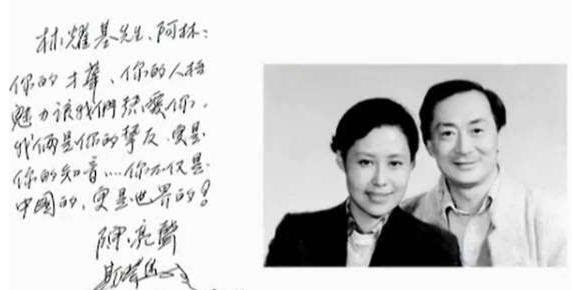 林耀基先生、阿林：
你的才華、你的人格
魅力讓我們热愛你。
我倆是你的摯友、更是
你的知音…你不仅是
中國的、更是世界的！
陳亮聲
斯琴